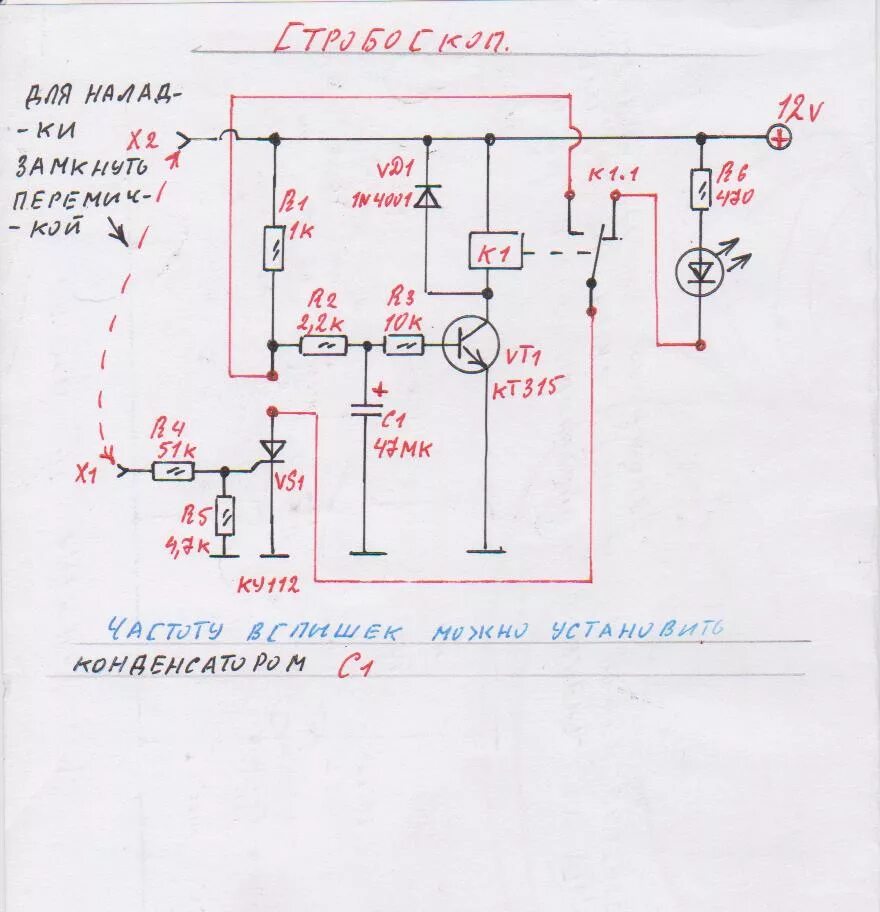 СТРОБОСКОП.
ДЛЯ НАЛАД-
-КИ
ЗАМКНУТЬ
ПЕРЕМИЧ-
-КОЙ
X2
12V
+
R1
1К
VD1
1N4001
К1
К1.1
R6
470
R2
2,2К
R3
10К
VT1
КТ315
+
C1
47МК
R4
51К
X1
VS1
R5
4,7К
КУ112
ЧАСТОТУ ВСПЫШЕК МОЖНО УСТАНОВИТЬ
КОНДЕНСАТОРОМ C1